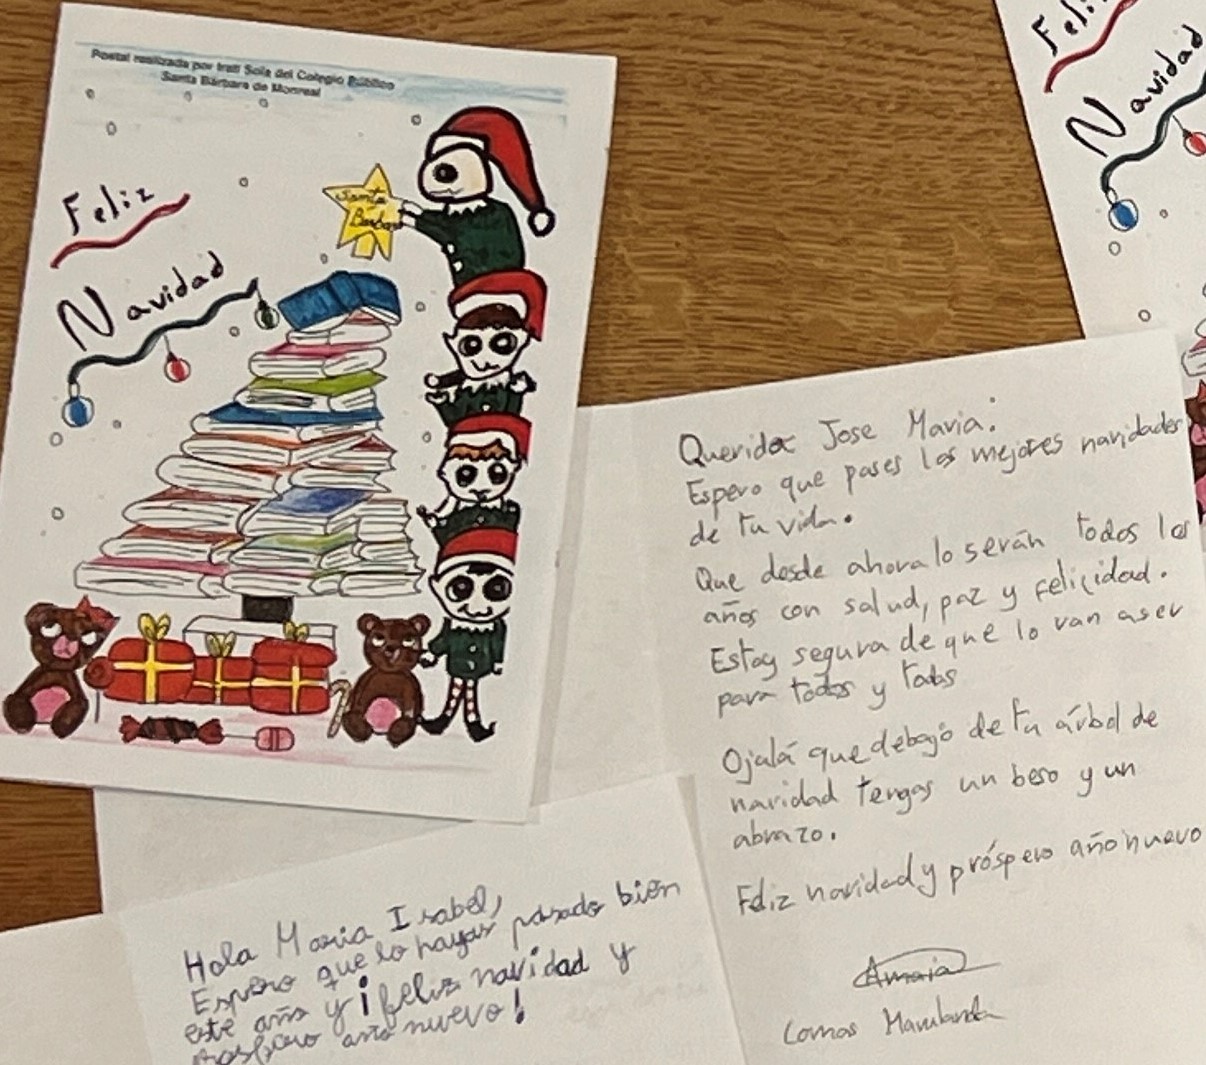 Postal realizada por Irati Sola del Colegio Público
Santa Bárbara de Monreal
Feliz
Navidad
Santa
Bárbara
Feliz
Navidad
Querida Jose Maria:
Espero que pases las mejores navidades
de tu vida.
Que desde ahora lo serán todos los
años con salud, paz y felicidad.
Estoy segura de que lo van a ser
para todos y todas
Ojalá que debajo de tu árbol de
navidad tengas un beso y un
abrazo.
Feliz navidad y próspero año nuevo
Amaia
Hola Maria Isabel,
Espero que lo hayas pasado bien
este año y ¡feliz navidad y
prospero año nuevo!